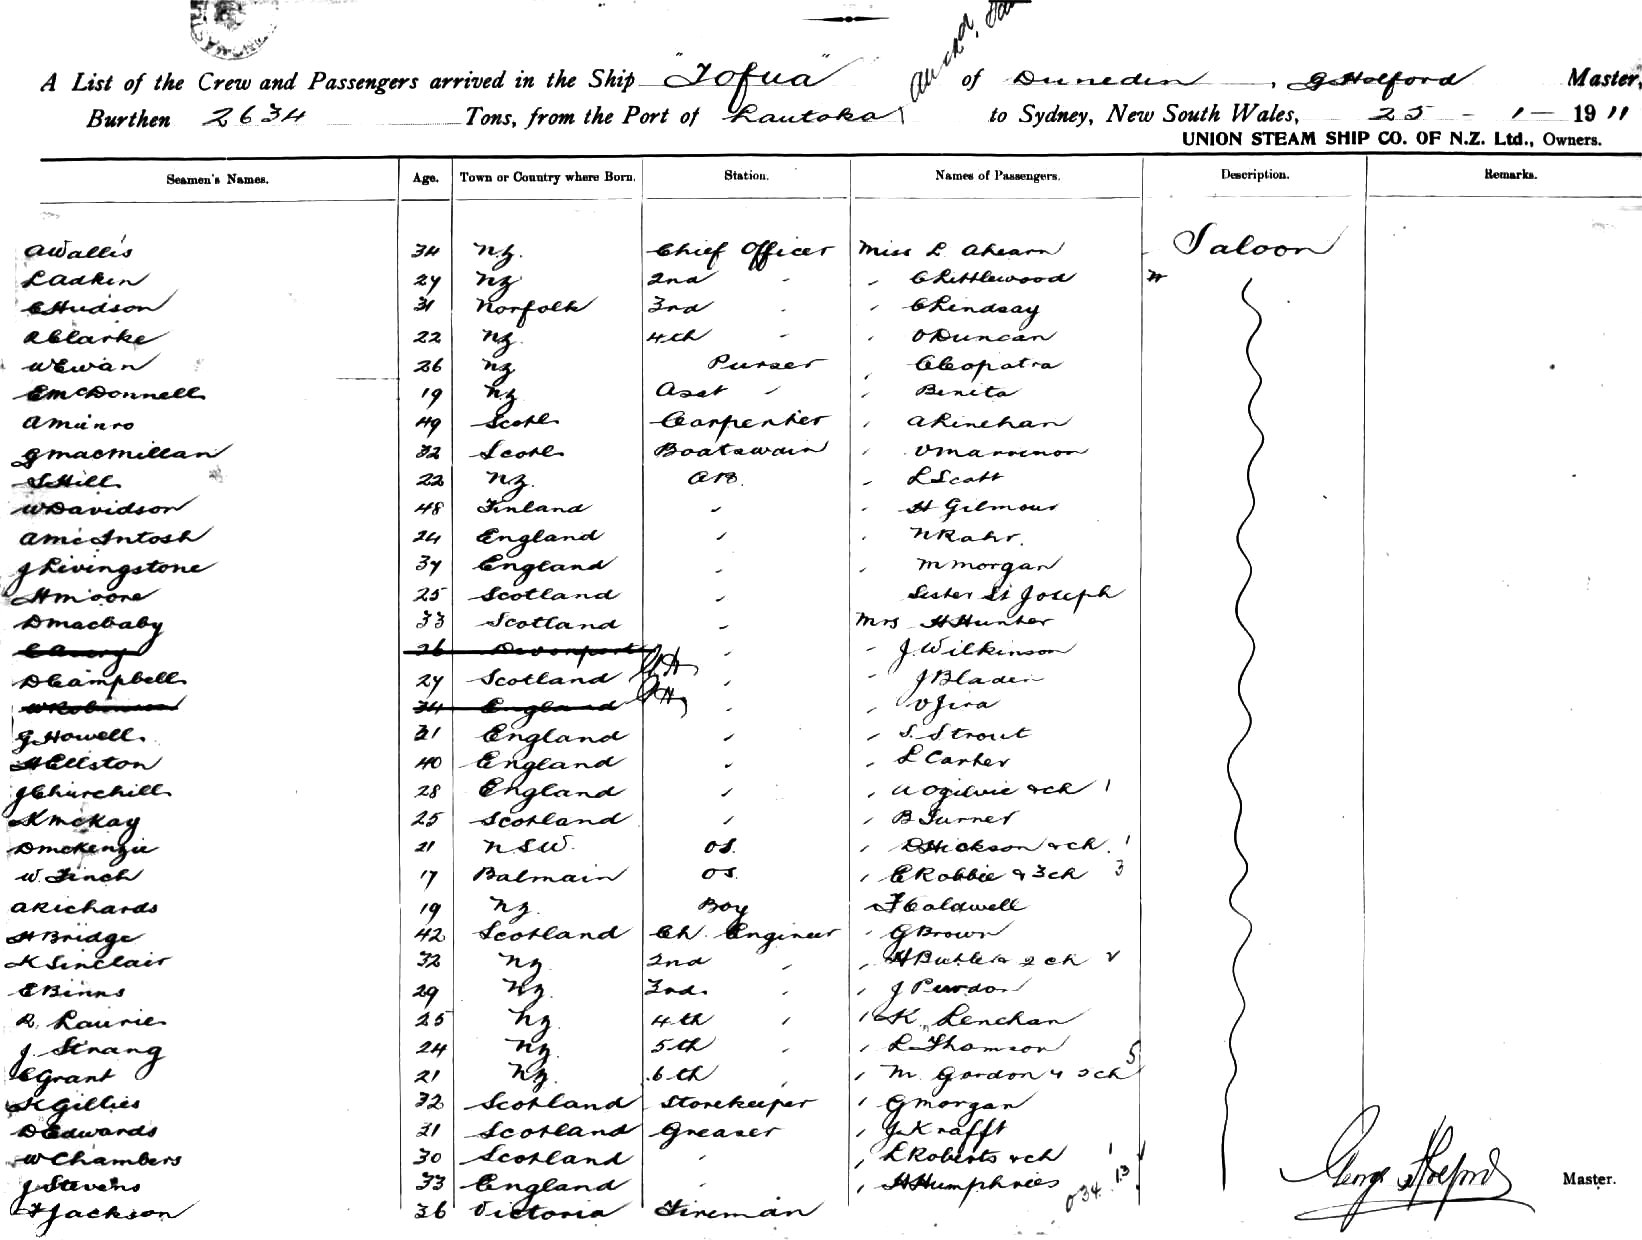 A List of the Crew and Passengers arrived in the Ship "Tofua" of Dunedin, G Holford Master,
Burthen 2634 Tons, from the Port of Lautoka to Sydney, New South Wales, 25 - 1 - 1911
UNION STEAM SHIP CO. OF N.Z. Ltd., Owners.
Seamen's Names. Age. Town or Country where Born. Station. Names of Passengers. Description. Remarks.
A Wallis 34 NZ. Chief Officer Miss L Ahearn Saloon
L Adkin 27 NZ 2nd " " C Littlewood
C Hudson 31 Norfolk 3rd " " C Lindsay
A Clarke 22 NZ 4th " " O Duncan
W Ewan 26 NZ Purser " Cleopatra
E McDonnell 19 NZ Asst " " Benita
A Munro 49 Scotl. Carpenter " A Linehan
G MacMillan 32 Scotl. Boatswain "
S Hill 22 NZ. AB. " L Scott
W Davidson 48 Finland " " H Gilmour
A McIntosh 24 England " " N Rahr.
J Livingstone 37 England " " M Morgan
H Moore 25 Scotland " Sister St Joseph
D Macbaby 33 Scotland " Mrs H Hunter
26 Devonport " " J. Wilkinson
D Campbell 27 Scotland " " J Bladen
W Robinson 34 England " " O Jira
G Howell 31 England " " S. Strout
H Ellston 40 England " " L Carter
J Churchill 28 England " " A Ogilvie & ch 1
K McKay 25 Scotland " " B Turner
D McKenzie 21 NSW. OS. " D Hickson & ch. 1
W. Finch 17 Balmain OS. " E Robbie & 3 ch 3
A Richards 19 NZ. Boy " F Caldwell
H Bridge 42 Scotland Ch. Engineer " G Brown
K Sinclair 32 NZ 2nd " " H Butler & 2 ch
E Binns 29 NZ. 3rd. " " J Purdon
R. Laurie 25 NZ. 4th " " K. Lenehan
J. Strang 24 NZ. 5th " " L Thomson
C Grant 21 NZ. 6th " " M. Gordon & 5 ch 5
K Gillies 32 Scotland Storekeeper " G Morgan
D Edwards 31 Scotland Greaser " J. Krafft
W Chambers 30 Scotland " " L Roberts & ch 1
J Stevens 33 England " " H Humphries 034. 13
F Jackson 36 Victoria Fireman
George Holford Master.